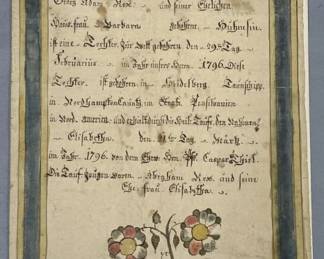 Georg Adam Rex = und seiner Ehelichen
Haus-frau Barbara gebohrne = Hühnesin.
ist eine = Tochter. Zur Welt gebohren den = 29ᵗ Tag =
Februarius = im Jahr unsers Herrn. 1796. Diese
Tochter. ist gebohren in = Heidelberg. Taunschipp.
in Northampton Caunty im Staat Pensilvanien
in Nord. america = und erhielt durch die Heil. Taufe. den Nahmen
Elisabetha. den Tag = Mårtz =
im Jahr. 1796. von dem Ehrw. Hrn. Pf. Caspar
Die Tauf Zeugen waren. Abraham Rex. und seine
Ehe frau Elisabetha.